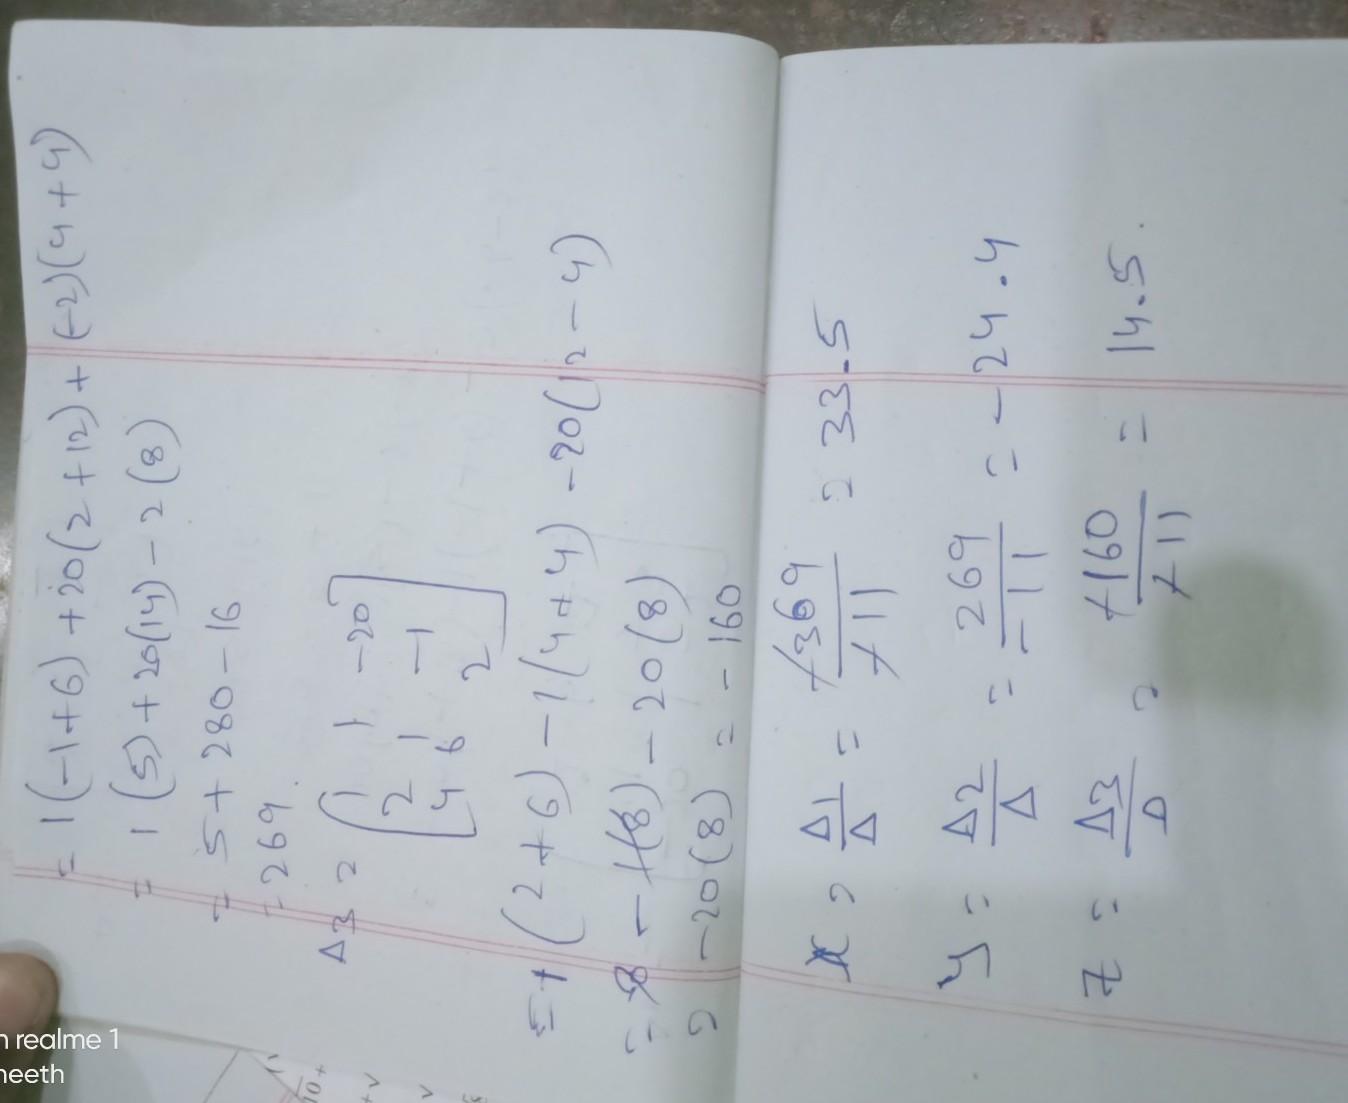 = 1(-1+6) + 20(2+12) + (-2)(4+4)
= 1(5) + 20(14) - 2(8)
= 5 + 280 - 16
= 269.
Δ3 = [1 1 -20
2 1 -1
4 6 2]
= 1(2+6) - 1(4+4) - 20(12-4)
= 8 - 1(8) - 20(8)
= -20(8) = -160
x = Δ1/Δ = -369/-11 = 33.5
y = Δ2/Δ = 269/-11 = -24.4
z = Δ3/Δ = -160/-11 = 14.5.
realme 1
heeth